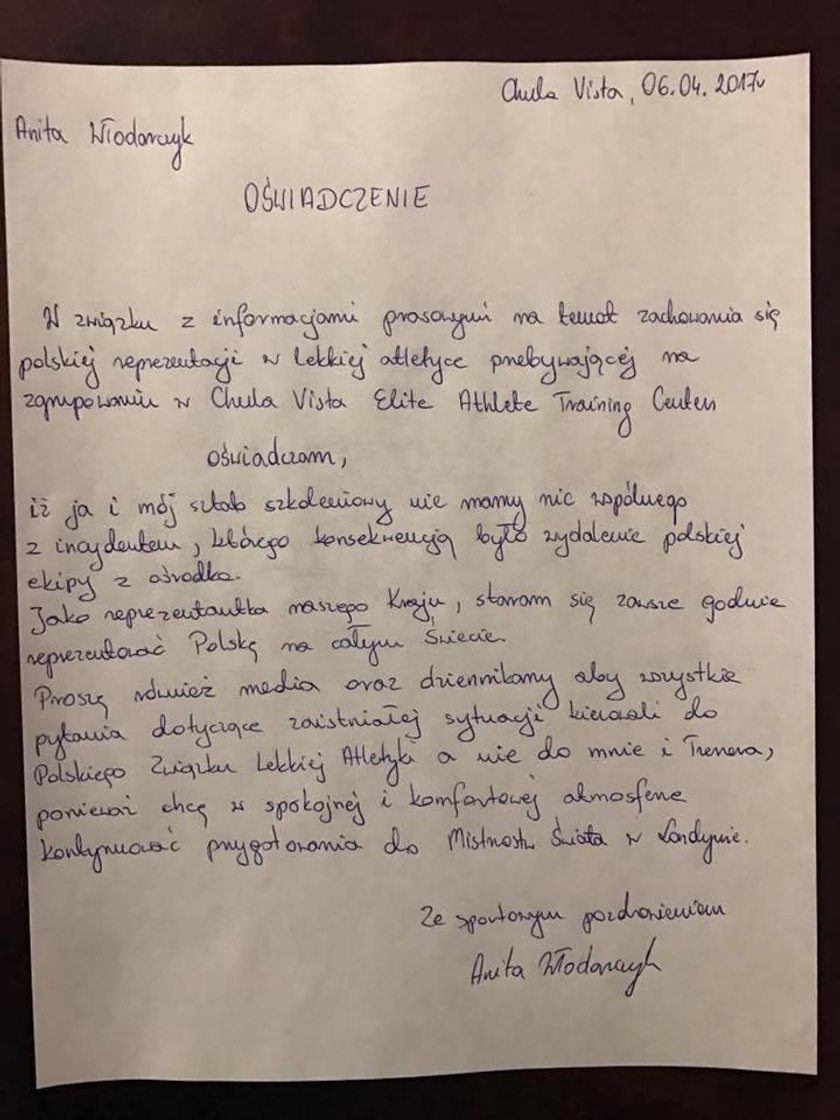 Chula Vista, 06.04.2017r
Anita Włodarczyk
OŚWIADCZENIE
W związku z informacjami prasowymi na temat zachowania się
polskiej reprezentacji w lekkiej atletyce przebywającej na
zgrupowaniu w Chula Vista Elite Athlete Training Center
oświadczam,
iż ja i mój sztab szkoleniowy nie mamy nic wspólnego
z incydentem, którego konsekwencją było wydalenie polskiej
ekipy z ośrodka.
Jako reprezentantka naszego Kraju, staram się zawsze godnie
reprezentować Polskę na całym Świecie.
Proszę również media oraz dziennikarzy aby wszystkie
pytania dotyczące zaistniałej sytuacji kierowali do
Polskiego Związku Lekkiej Atletyki a nie do mnie i Trenera,
ponieważ chcę w spokojnej i komfortowej atmosferze
kontynuować przygotowania do Mistrzostw Świata w Londynie.
Ze sportowym pozdrowieniem
Anita Włodarczyk